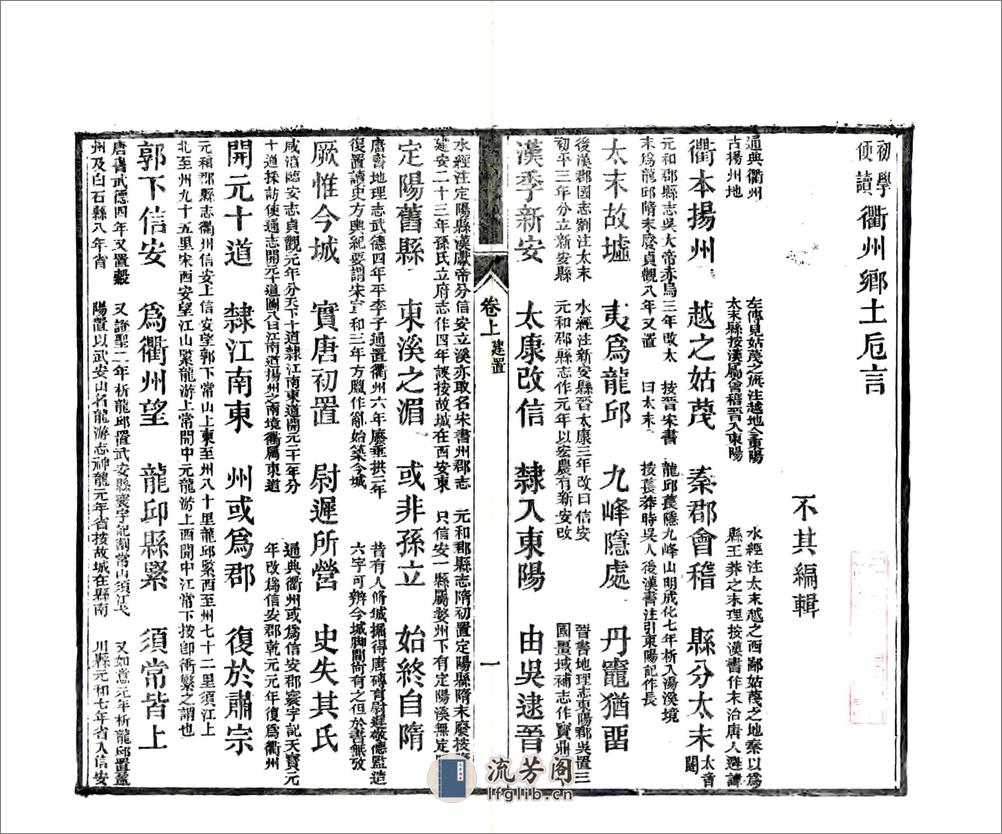 初學便讀
衢州鄉土卮言
不其編輯
通典衢州
古揚州地
左傳見姑蔑之旗注越地今東陽
太末縣按漢屬會稽晉入東陽
水經注太末越之西鄙姑蔑之地秦以爲
縣王莽之末理按漢書作末治唐人避諱
衢本揚州 越之姑蔑 秦郡會稽 縣分太末 太音闥
元和郡縣志吳大帝赤烏三年改太
末爲龍邱隋末廢貞觀八年又置
按晉宋書
曰太末
龍邱萇隱九峰山明成化七年析入湯溪境
按萇莽時吳人後漢書注引東陽記作長
太末故墟 夷爲龍邱 九峰隱處 丹竈猶畱
後漢郡國志劉注太末
初平三年分立新安縣
水經注新安縣晉太康三年改曰信安
元和郡縣志作元年以宏農有新安改
晉書地理志東陽郡吳置三
國畺域補志作寶鼎
漢季新安 太康改信 隸入東陽 由吳逮晉
卷上 建置 一
水經注定陽縣漢獻帝分信安立溪亦取名宋書州郡志
建安二十三年孫氏立府志作四年誤按故城在西安東
元和郡縣志隋初置定陽縣隋末廢按
只信安一縣屬婺州下有定陽溪無定
定陽舊縣 東溪之湄 或非孫立 始終自隋
唐書地理志武德四年平李子通置衢州六年廢垂拱二年
復置讀史方輿紀要謂宋宣和三年方臘作亂始築今城
昔有人脩城掘得唐磚有尉遲敬德監造
六字可辨今城脚間尚有之但於書無攷
厥惟今城 實唐初置 尉遲所營 史失其氏
咸淳臨安志貞觀元年分天下十道隸江南東道開元二十一年分
十道採訪使通志開元十道圖八曰江南道揚州之南境衢屬東道
通典衢州或爲信安郡寰宇記天寶元
年改爲信安郡乾元元年復爲衢州
開元十道 隸江南東 州或爲郡 復於肅宗
元和郡縣志衢州信安上信安望郭下常山上東至州八十里龍邱緊西至州七十二里須江上
北至州九十五里宋西安望江山緊龍游上常開中元龍游上西開中江常下按卽衝繁之謂也
郭下信安 爲衢州望 龍邱縣緊 須常皆上
唐書武德四年又置縠
州及白石縣八年省
又證聖二年析龍邱置武安縣寰宇記開常山須江弋
陽置以武安山名龍游志神龍元年省按故城在縣南
又如意元年析龍邱置盈
川縣元和七年省入信安
流芳阁
lfglib.cn